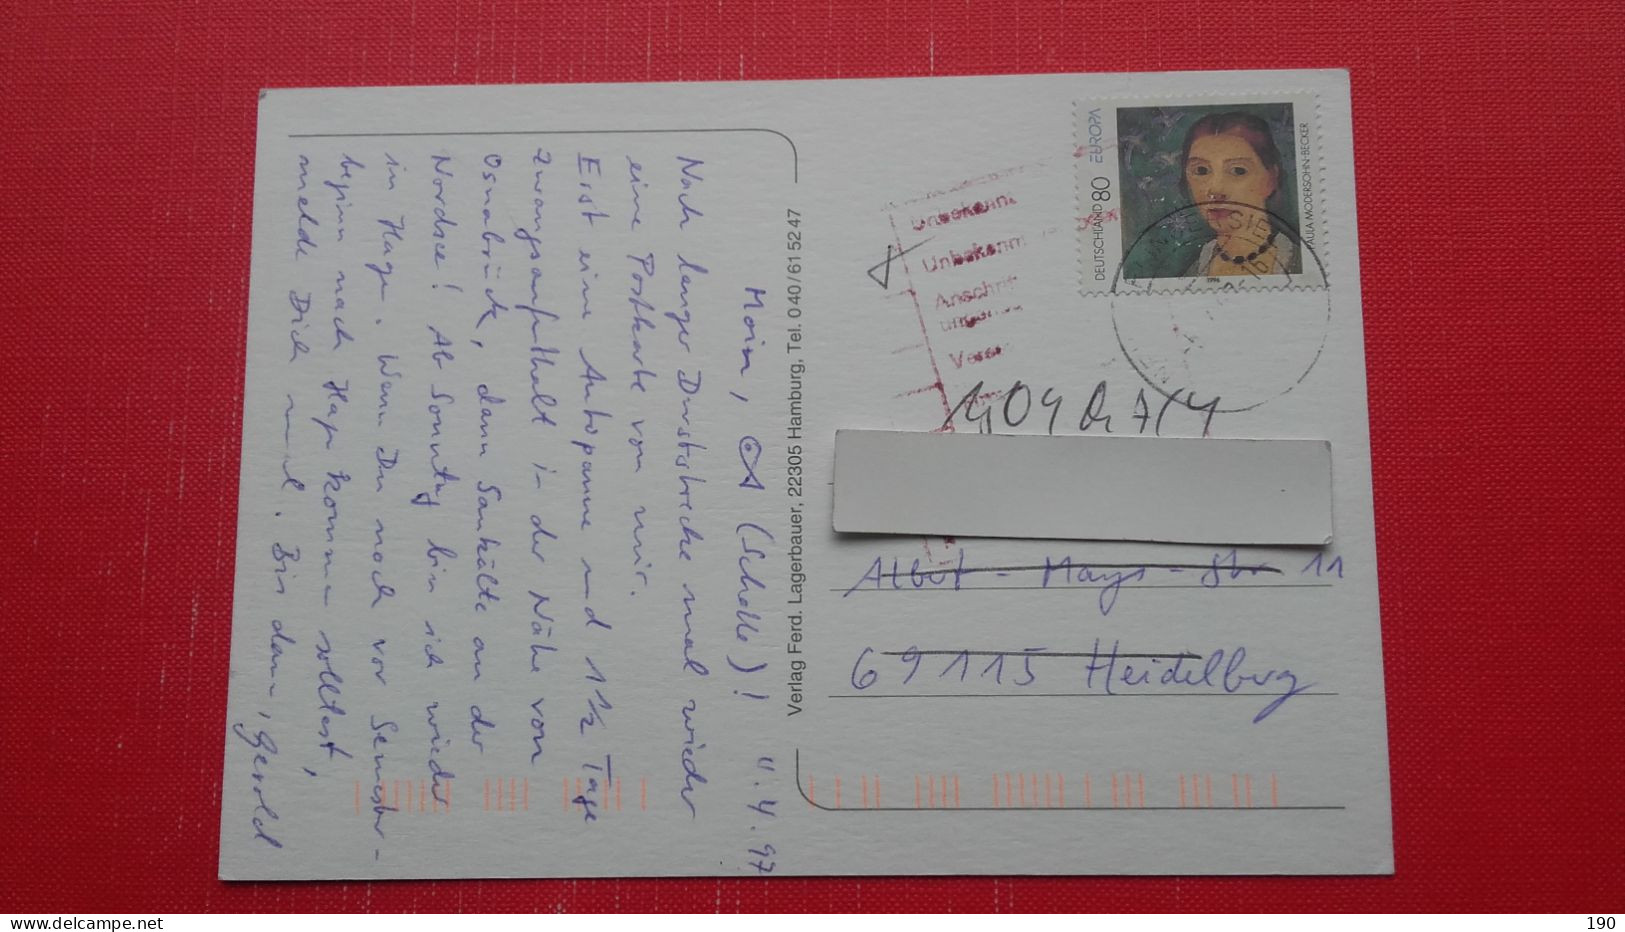 Moin, (Schalle)! 11.4.97
Nach langer Durststrecke mal wieder
eine Postkarte von mir.
Erst eine Autopanne und 1 1/2 Tage
Zwangsaufenthalt in der Nähe von
Osnabrück, dann Saukälte an der
Nordsee! Ab Sonntag bin ich wieder
in Hage. Wenn Du noch vor Semester-
beginn nach Hage kommen solltest,
melde Dich mal. Bis dann, Gerold
Verlag Ferd. Lagerbauer, 22305 Hamburg, Tel. 0 40/61 52 47
DEUTSCHLAND 80 EUROPA
PAULA MODERSOHN-BECKER
1996
Unbekannt
Unbekannt
Anschrift
Albert-Mays-Str 11
69115 Heidelberg
190